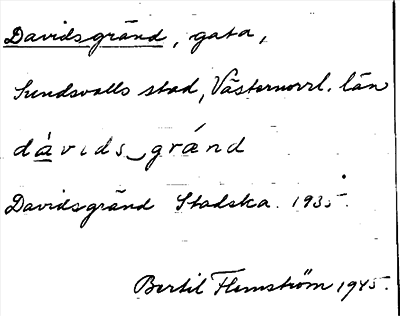 Davidsgränd, gata,
Sundsvalls stad, Västernorrl. län
dàvids‿gránd
Davidsgränd Stadska. 1935.
Bertil Flemström 1945.